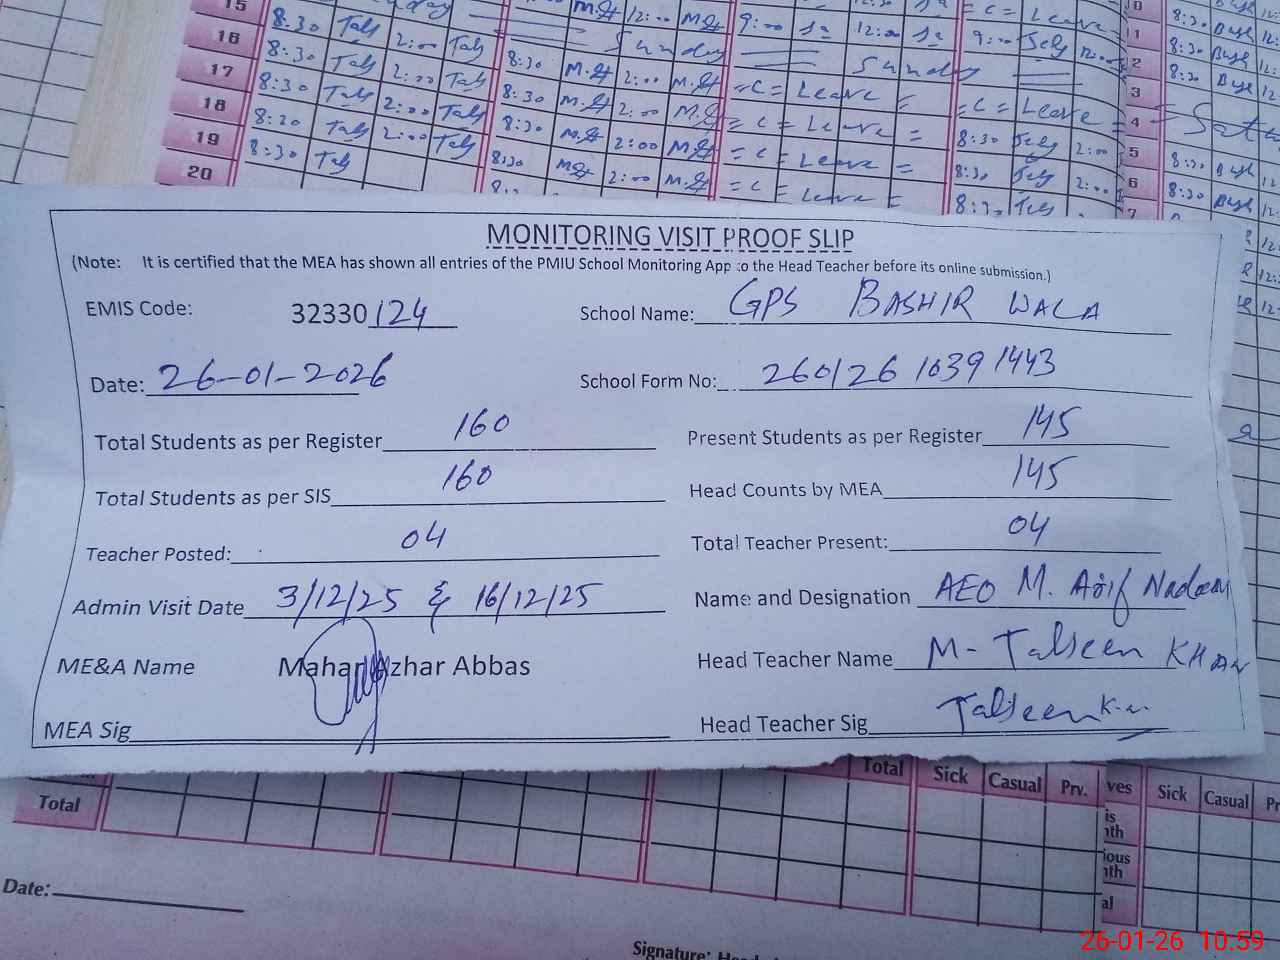 15 8:30 Tah 2:00 Tah M.H 12:00 M.H 9:00 Sa 12:00 Sa = C = Leave
16 8:30 Tah 2:00 Tah Sunday 9:00 12:00
17 8:30 Tah 2:00 Tah 8:30 M.H 2:00 M.H Sunday
18 8:30 Tah 2:00 Tah 8:30 M.H 2:00 M.H = C = Leave = = C = Leave =
19 8:30 Tah 8:30 M.H 2:00 M.H = C = Leave = 8:30 2:00
20 8:30 M.H 2:00 M.H = C = Leave = 8:30 2:00
= C = Leave =
MONITORING VISIT PROOF SLIP
(Note: It is certified that the MEA has shown all entries of the PMIU School Monitoring App to the Head Teacher before its online submission.)
EMIS Code: 32330124 School Name: GPS BASHIR WALA
Date: 26-01-2026 School Form No: 260126 1039 1443
Total Students as per Register 160 Present Students as per Register 145
Total Students as per SIS 160 Head Counts by MEA 145
Teacher Posted: 04 Total Teacher Present: 04
Admin Visit Date 3/12/25 & 16/12/25 Name and Designation AEO M. Arif Nadeem
ME&A Name Mahar Azhar Abbas Head Teacher Name M- Tahseen KHAN
MEA Sig Head Teacher Sig Tahseen
Total Sick Casual Prv. ves Sick Casual Pr
Total
Date:
Signature: Head
26-01-26 10:59